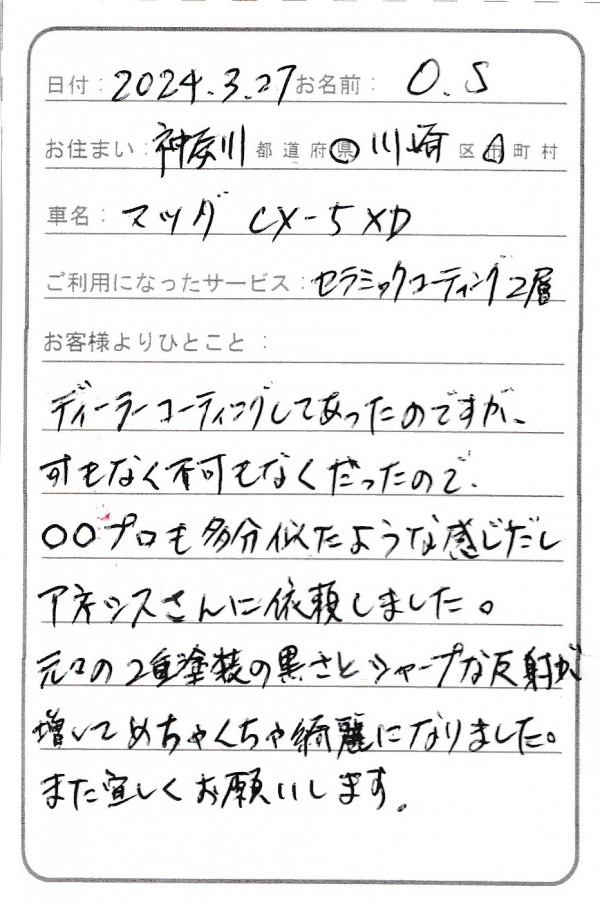 日付：2024.3.27 お名前：O.S
お住まい：神奈川 都道府県 川崎 区市町村
車名：マツダ CX-5 XD
ご利用になったサービス：セラミックコーティング2層
お客様よりひとこと：
ディーラーコーティングしてあったのですが、
可もなく不可もなくだったので、
○○プロも多分似たような感じだし
アネシスさんに依頼しました。
元々の2重塗装の黒さとシャープな反射が
増してめちゃくちゃ綺麗になりました。
また宜しくお願いします。